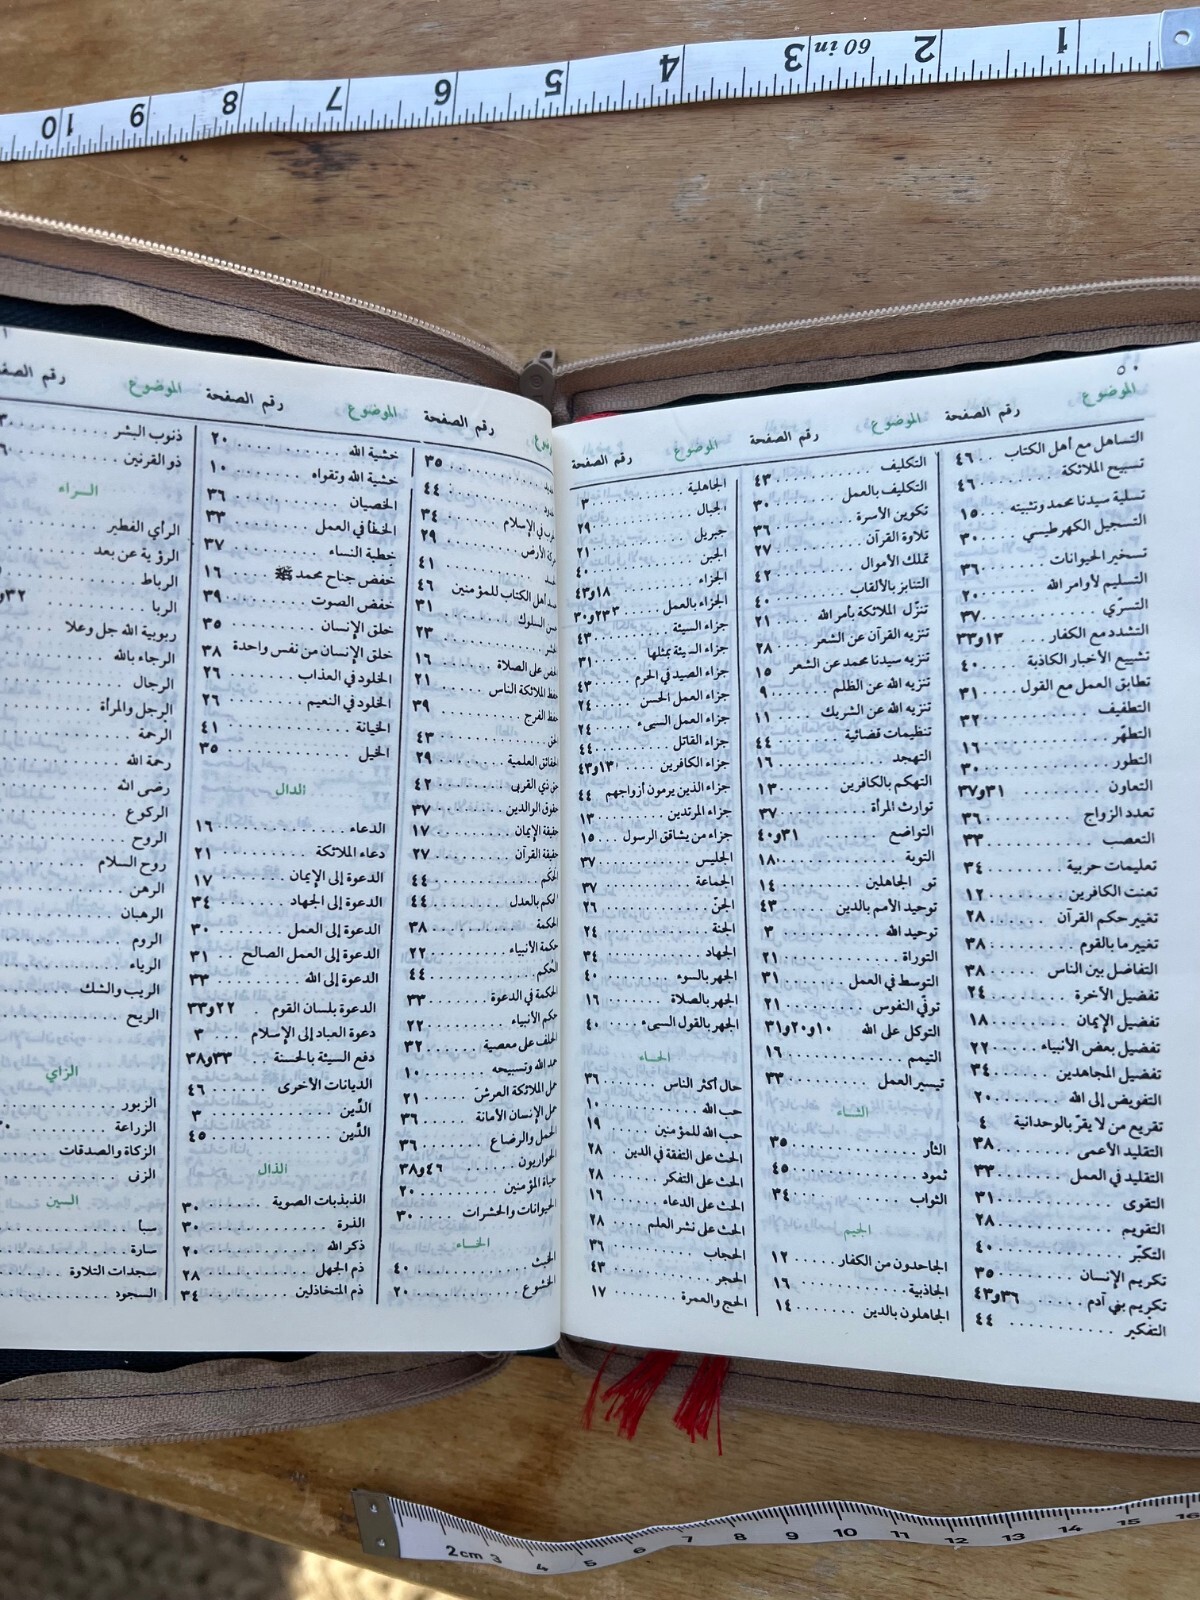 1 2 60 in 3 4 5 6 7 8 9 10
٥٠
الموضوع رقم الصفحة
التساهل مع أهل الكتاب . . ٤٦
تسبيح الملائكة . . . . . . ٤٦
تسلية سيدنا محمد وتثبيته . . ١٥
التسجيل الكهرطيسي . . . ٣٠
تسخير الحيوانات . . . . . ٣٦
التسليم لأوامر الله . . . . . ٢٠
التسرّي . . . . . . . . . ٣٧
التشدد مع الكفار . . ١٣و٣٣
تشييع الأخبار الكاذبة . . . ٤٠
تطابق العمل مع القول . . . ٣١
التطفيف . . . . . . . . . ٣٢
التطهّر . . . . . . . . . ١٦
التطور . . . . . . . . . ٣٠
التعاون . . . . . . ٣١و٣٧
تعدد الزواج . . . . . . . ٣٦
التعصب . . . . . . . . . ٣٣
تعليمات حربية . . . . . . ٣٤
تعنت الكافرين . . . . . . ١٢
تغيير حكم القرآن . . . . . ٢٨
تغيير ما بالقوم . . . . . . ٣٨
التفاضل بين الناس . . . . ٣٨
تفضيل الآخرة . . . . . . ٢٤
تفضيل الإيمان . . . . . . ١٨
تفضيل بعض الأنبياء . . . . ٢٢
تفضيل المجاهدين . . . . . ٣٤
التفويض إلى الله . . . . . ٢٠
تقريع من لا يقرّ بالوحدانية . ٤
التقليد الأعمى . . . . . . ٣٨
التقليد في العمل . . . . . ٣٣
التقوى . . . . . . . . . ٣١
التقويم . . . . . . . . . ٢٨
التكبّر . . . . . . . . . ٤٠
تكريم الإنسان . . . . . . ٣٥
تكريم بني آدم . . . . ٣٦و٤٣
التفكير . . . . . . . . . ٤٤
الموضوع رقم الصفحة
التكليف . . . . . . . . . ٤٣
التكليف بالعمل . . . . . . ٣٠
تكوين الأسرة . . . . . . ٣٦
تلاوة القرآن . . . . . . . ٢٧
تملك الأموال . . . . . . . ٤٢
التنابز بالألقاب . . . . . . ٤٠
تنزّل الملائكة بأمر الله . . . ٢١
تنزيه القرآن عن الشعر . . . ٢٨
تنزيه سيدنا محمد عن الشعر . ١٥
تنزيه الله عن الظلم . . . . ٩
تنزيه الله عن الشريك . . . ١١
تنظيمات قضائية . . . . . ٤٤
التهجد . . . . . . . . . ١٦
التهكم بالكافرين . . . . . ١٣
توارث المرأة . . . . . . . ٣٧
التواضع . . . . . . ٣١و٤٠
التوبة . . . . . . . . . ١٨
الجاهلين . . . . . ١٤
توحيد الأمم بالدين . . . . ٤٣
توحيد الله . . . . . . . . ٣
التوراة . . . . . . . . . ٢١
التوسط في العمل . . . . . ٣١
توفّي النفوس . . . . . . . ٢١
التوكل على الله . ١٠و٢٠و٣١
التيمم . . . . . . . . . ١٦
تيسير العمل . . . . . . . ٣٣
الثاء
الثأر . . . . . . . . . . ٣٥
ثمود . . . . . . . . . . ٤٥
الثواب . . . . . . . . . ٣٤
الجيم
الجاحدون من الكفار . . . . ١٢
الجاذبية . . . . . . . . . ١٦
الجاهلون بالدين . . . . . ١٤
الموضوع رقم الصفحة
الجاهلية . . . . . . . . . ٣
الجبال . . . . . . . . . ٢٩
جبريل . . . . . . . . . ٢١
الجبن . . . . . . . . . ٤٠
الجزاء . . . . . . . ١٨و٤٣
الجزاء بالعمل . . . . ٢٣و٣٠
جزاء السيئة . . . . . . . ٤٣
جزاء السيئة بمثلها . . . . . ٣١
جزاء الصيد في الحرم . . . . ٤٣
جزاء العمل الحسن . . . . ٢٤
جزاء العمل السيء . . . . ٢٤
جزاء القاتل . . . . . . . ٤٤
جزاء الكافرين . . . . ١٣و٤٣
جزاء الذين يرمون أزواجهم ٤٤
جزاء المرتدين . . . . . . ١٣
جزاء من يشاقق الرسول . . . ١٥
الجليس . . . . . . . . . ٣٧
الجماعة . . . . . . . . . ٣٧
الجنّ . . . . . . . . . . ٢٦
الجنة . . . . . . . . . . ٢٤
الجهاد . . . . . . . . . ٣٤
الجهر بالسوء . . . . . . . ٤٠
الجهر بالصلاة . . . . . . ١٦
الجهر بالقول السيء . . . . ٤٠
الحاء
حال أكثر الناس . . . . . ٣٦
حب الله . . . . . . . . . ١٠
حب الله للمؤمنين . . . . . ١٩
الحث على التفقة في الدين . ٢٨
الحث على التفكر . . . . . ٢٨
الحث على الدعاء . . . . . ١٦
الحث على نشر العلم . . . . ٢٨
الحجاب . . . . . . . . . ٣٦
الحجر . . . . . . . . . . ٤٣
الحج والعمرة . . . . . . . ١٧
رقم الصفحة
. . . . . ٣٥
. . . . . ٤٤
في الإسلام . . . . ٣٤
الأرض . . . . . ٢٩
. . . . . ٤١
أهل الكتاب للمؤمنين ٤٦
السلوك . . . . . ٣١
. . . . . ٢٣
على الصلاة . . . . ١٦
الملائكة الناس . . . ٢١
الفرج . . . . . . ٣٩
. . . . . ٤٣
الحقائق العلمية . . . . . ٢٩
حق ذي القربى . . . . . . ٤٢
حقوق الوالدين . . . . . . ٣٧
حقيقة الإيمان . . . . . . ١٧
حقيقة القرآن . . . . . . ٢٧
الحكم . . . . . . . . . ٤٤
الحكم بالعدل . . . . . . ٤٤
الحكمة . . . . . . . . . ٣٨
حكمة الأنبياء . . . . . . ٢٢
الحكم . . . . . . . . . ٤٤
الحكمة في الدعوة . . . . . ٣٣
حكم الأنبياء . . . . . . . ٢٢
الحلف على معصية . . . . ٣٢
حمد الله وتسبيحه . . . . . ١٠
حمل الملائكة العرش . . . ٢١
حمل الإنسان الأمانة . . . . ٣٦
الحمل والرضاع . . . . . ٣٦
الحواريون . . . . . ٤٦و٣٨
حياة المؤمنين . . . . . . ٢٠
الحيوانات والحشرات . . . ٣٠
الخاء
الخبث . . . . . . . . . ٤٠
الخشوع . . . . . . . . . ٢٠
الموضوع رقم الصفحة
خشية الله . . . . . . . . ٢٠
خشية الله وتقواه . . . . . ١٠
الخصيان . . . . . . . . ٣٦
الخطأ في العمل . . . . . . ٣٣
خطبة النساء . . . . . . . ٣٧
خفض جناح محمد ﷺ . . ١٦
خفض الصوت . . . . . . ٣٩
خلق الإنسان . . . . . . . ٣٥
خلق الإنسان من نفس واحدة ٣٨
الخلود في العذاب . . . . . ٢٦
الخلود في النعيم . . . . . ٢٦
الخيانة . . . . . . . . . ٤١
الخيل . . . . . . . . . . ٣٥
الدال
الدعاء . . . . . . . . . ١٦
دعاء الملائكة . . . . . . ٢١
الدعوة إلى الإيمان . . . . ١٧
الدعوة إلى الجهاد . . . . . ٣٤
الدعوة إلى العمل . . . . . ٣٠
الدعوة إلى العمل الصالح . . ٣١
الدعوة إلى الله . . . . . . ٣٣
الدعوة بلسان القوم . ٢٢و٣٣
دعوة العباد إلى الإسلام . . . ٣
دفع السيئة بالحسنة . . ٣٣و٣٨
الديانات الأخرى . . . . . ٤٦
الدِّين . . . . . . . . . . ٣
الدَّين . . . . . . . . . . ٤٥
الذال
الذبذبات الصوتية . . . . . ٣٠
الذرة . . . . . . . . . . ٣٠
ذكر الله . . . . . . . . . ٢٠
ذم الجهل . . . . . . . . ٢٨
ذم المتخاذلين . . . . . . ٣٤
الموضوع رقم الصفحة
ذنوب البشر . . . . . . .
ذو القرنين . . . . . . . .
الراء
الرأي الفطير . . . . . . .
الرؤية عن بعد . . . . . .
الرباط . . . . . . . . .
الربا . . . . . . ٣٢و
ربوبية الله جل وعلا . . . .
الرجاء بالله . . . . . . . .
الرجال . . . . . . . . .
الرجل والمرأة . . . . . . .
الرحمة . . . . . . . . .
رحمة الله . . . . . . . .
رضى الله . . . . . . . .
الركوع . . . . . . . . .
الروح . . . . . . . . . .
روح السلام . . . . . . .
الرهن . . . . . . . . . .
الرهبان . . . . . . . . .
الروم . . . . . . . . . .
الرياء . . . . . . . . . .
الريب والشك . . . . . . .
الريح . . . . . . . . . .
الزاي
الزبور . . . . . . . . . .
الزراعة . . . . . . . . .
الزكاة والصدقات . . . . .
الزنى . . . . . . . . . .
السين
سبأ . . . . . . . . . . .
سارة . . . . . . . . . .
سجدات التلاوة . . . . . .
السجود . . . . . . . . .
2cm 3 4 5 6 7 8 9 10 11 12 13 14 15 16